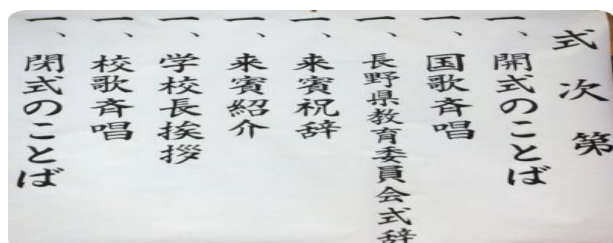 式次第
一、開式のことば
一、国歌斉唱
一、長野県教育委員会式辞
一、来賓祝辞
一、来賓紹介
一、学校長挨拶
一、校歌斉唱
一、閉式のことば